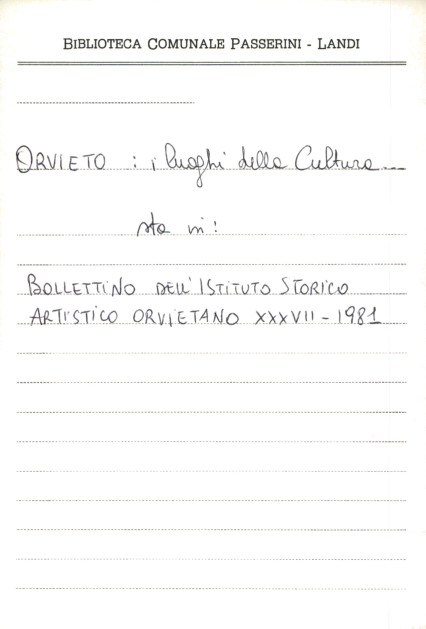 BIBLIOTECA COMUNALE PASSERINI - LANDI
ORVIETO : i luoghi della Cultura...
sta in:
BOLLETTINO DELL'ISTITUTO STORICO
ARTISTICO ORVIETANO XXXVII - 1981